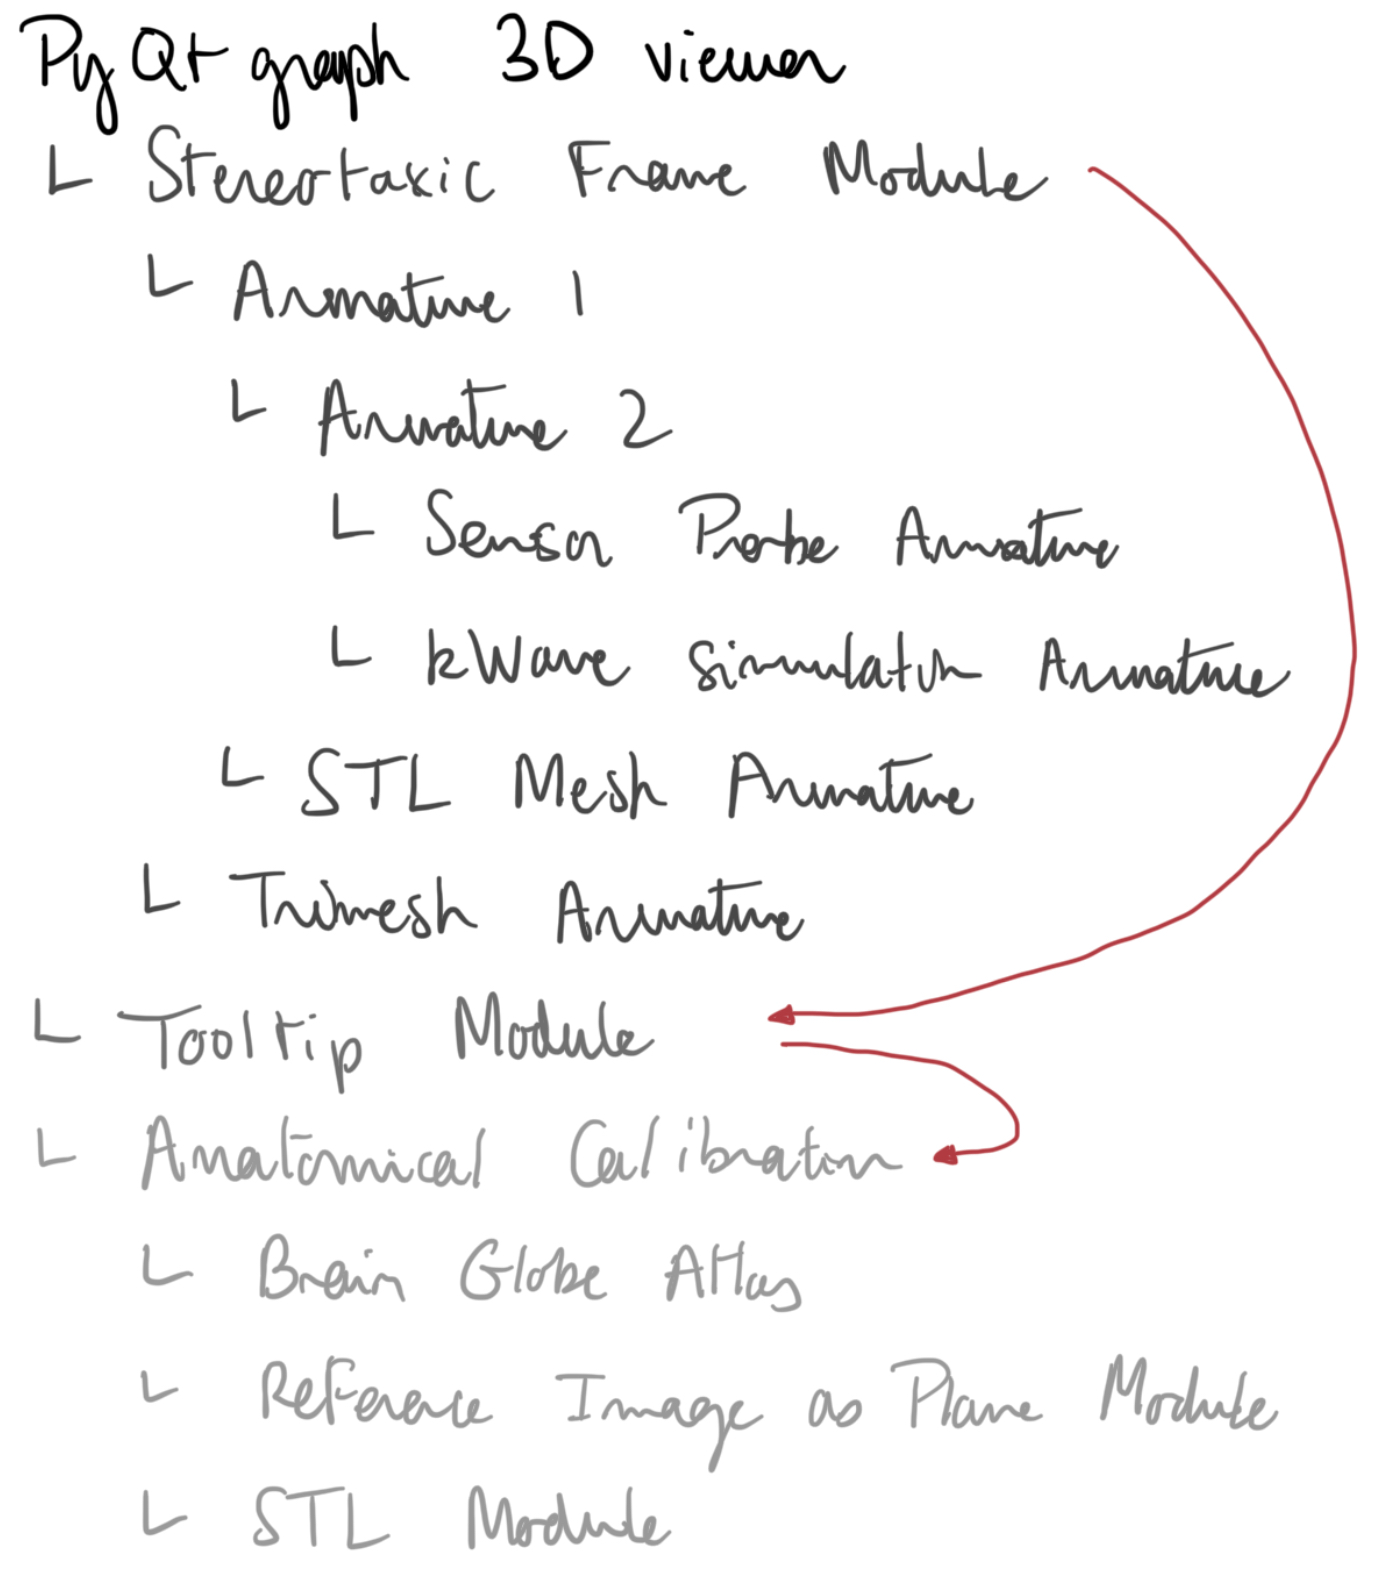 PyQt graph 3D viewer
└ Stereotaxic Frame Module
└ Armature 1
└ Armature 2
└ Sensor Probe Armature
└ kWave simulation Armature
└ STL Mesh Armature
└ Trimesh Armature
└ Tooltip Module
└ Anatomical Calibration
└ Brain Globe Atlas
└ Reference Image as Plane Module
└ STL Module